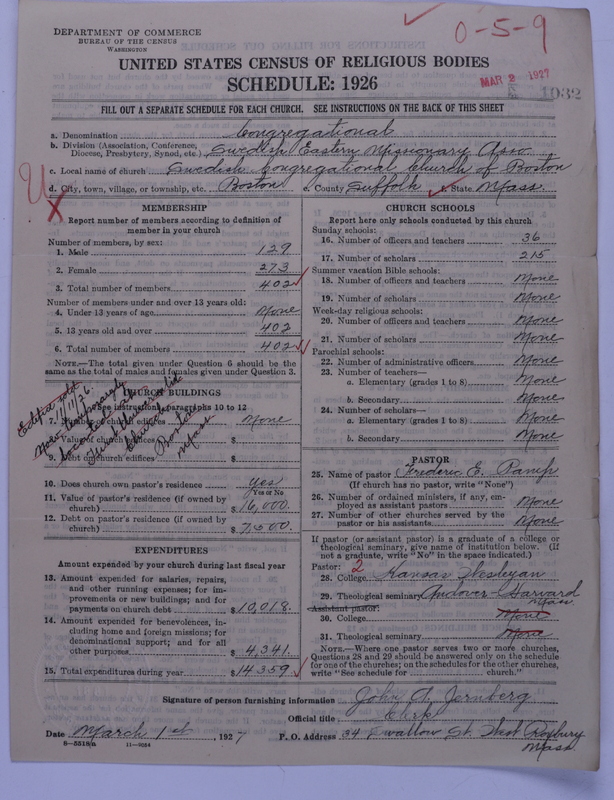 0-5-9
DEPARTMENT OF COMMERCE
BUREAU OF THE CENSUS
WASHINGTON
UNITED STATES CENSUS OF RELIGIOUS BODIES
SCHEDULE: 1926
MAR 2 1927
1032
FILL OUT A SEPARATE SCHEDULE FOR EACH CHURCH. SEE INSTRUCTIONS ON THE BACK OF THIS SHEET
a. Denomination Congregational
b. Division (Association, Conference, Diocese, Presbytery, Synod, etc.) Swedish Eastern Missionary Asso.
c. Local name of church Swedish Congregational Church of Boston
d. City, town, village, or township, etc. Boston e. County Suffolk f. State Mass.
MEMBERSHIP
Report number of members according to definition of
member in your church
Number of members, by sex:
1. Male 129
2. Female 273
3. Total number of members 402
Number of members under and over 13 years old:
4. Under 13 years of age None
5. 13 years old and over 402
6. Total number of members 402
NOTE.—The total given under Question 6 should be the
same as the total of males and females given under Question 3.
CHURCH BUILDINGS
See instructions, paragraphs 10 to 12
7. Number of church edifices None
8. Value of church edifices $
9. Debt on church edifices $
Edifice sold
11/11/26.
Now temporarily
located
Church
Boston
Mass
10. Does church own pastor's residence yes
Yes or No
11. Value of pastor's residence (if owned by
church) $16,000.
12. Debt on pastor's residence (if owned by
church) $7,500.
EXPENDITURES
Amount expended by your church during last fiscal year
13. Amount expended for salaries, repairs,
and other running expenses; for im-
provements or new buildings; and for
payments on church debt $10,018.
14. Amount expended for benevolences, in-
cluding home and foreign missions; for
denominational support; and for all
other purposes $4,341.
15. Total expenditures during year $14,359
CHURCH SCHOOLS
Report here only schools conducted by this church
Sunday schools:
16. Number of officers and teachers 36
17. Number of scholars 215
Summer vacation Bible schools:
18. Number of officers and teachers None
19. Number of scholars None
Week-day religious schools:
20. Number of officers and teachers None
21. Number of scholars None
Parochial schools:
22. Number of administrative officers None
23. Number of teachers—
a. Elementary (grades 1 to 8) None
b. Secondary None
24. Number of scholars—
a. Elementary (grades 1 to 8) None
b. Secondary None
PASTOR
25. Name of pastor Frederic E. Pamp
(If church has no pastor, write "None")
26. Number of ordained ministers, if any, em-
ployed as assistant pastors None
27. Number of other churches served by the
pastor or his assistants None
If pastor (or assistant pastor) is a graduate of a college or
theological seminary, give name of institution below. (If
not a graduate, write "No" in the space indicated.)
Pastor: 2
28. College Kansas Wesleyan
29. Theological seminary Andover-Harvard
Mass.
Assistant pastor:
30. College None
31. Theological seminary None
NOTE.—Where one pastor serves two or more churches,
Questions 28 and 29 should be answered only on the schedule
for one of the churches; on the schedules for the other churches,
write "See schedule for church."
Signature of person furnishing information John A. Jernberg
Official title Clerk
Date March 1st, 1927 P. O. Address 34 Swallow St. West Roxbury
Mass.
8-5518a 11-9084